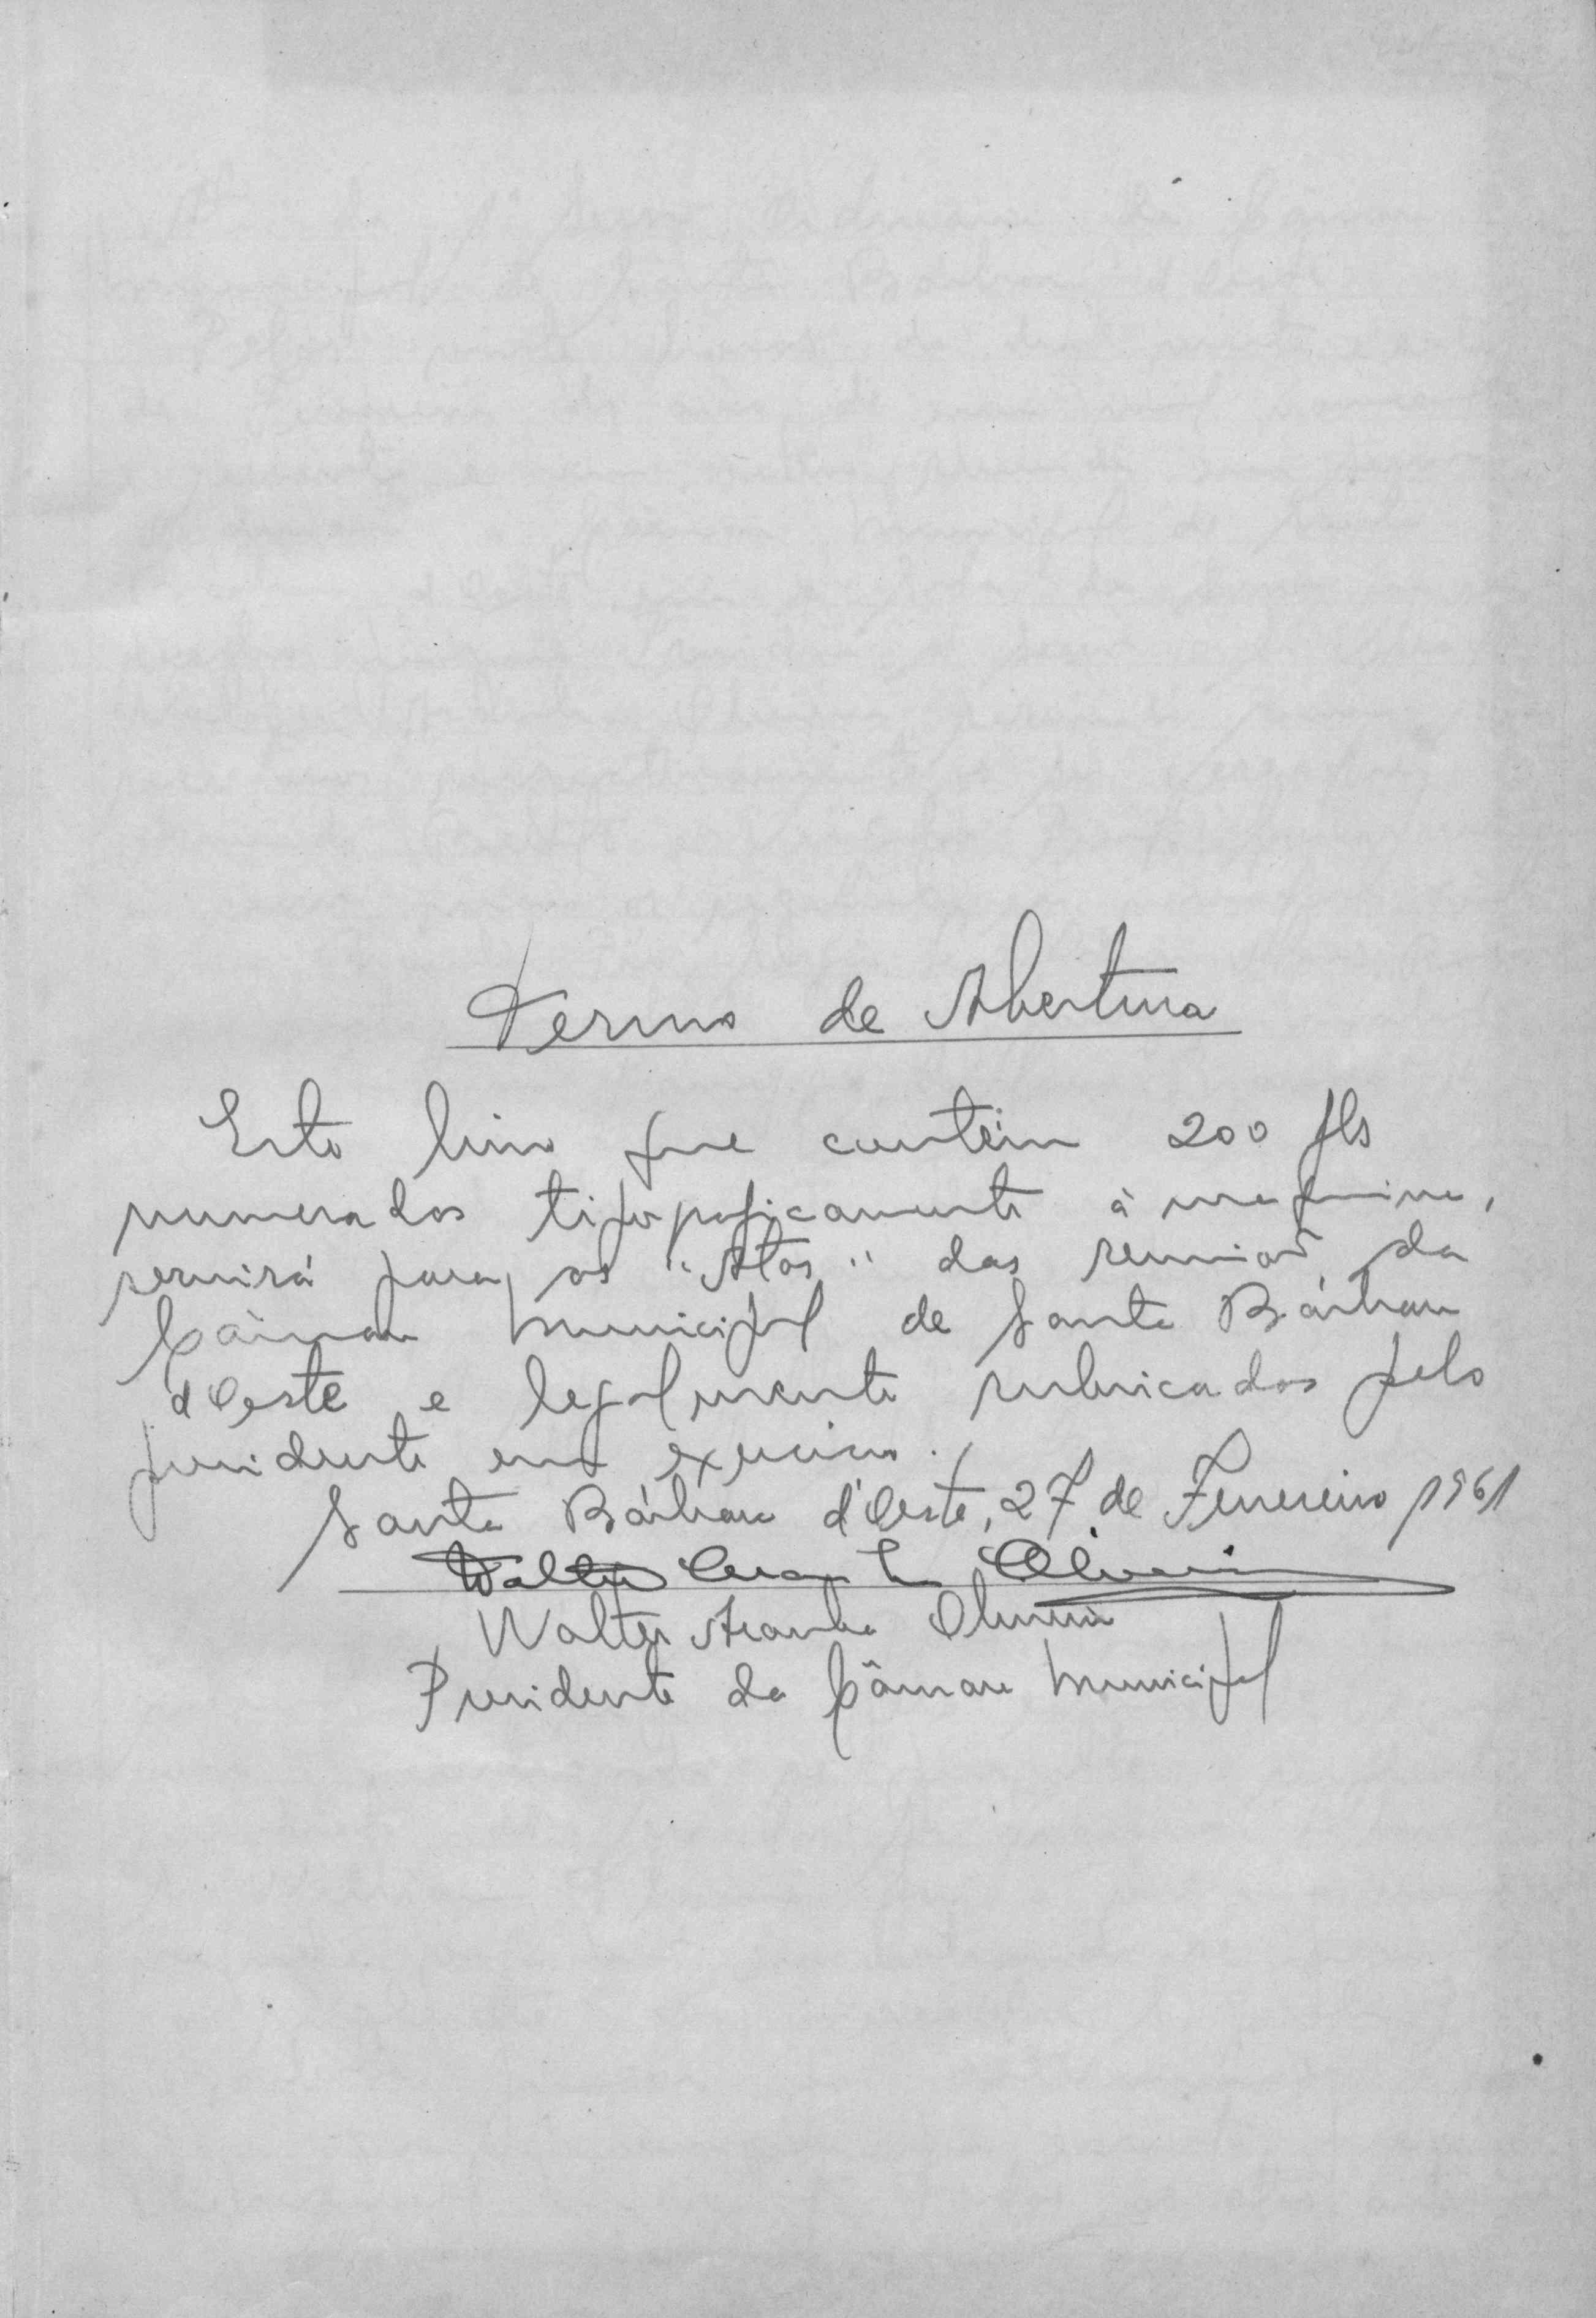 Termo de Abertura
Este livro que contém 200 fls
numerados tipograficamente à maquina,
servirá para as "Atas" das reuniões da
Câmara Municipal de Santa Bárbara
d'Oeste e legalmente rubricados pelo
presidente em exercicio.
Santa Bárbara d'Oeste, 27 de Fevereiro 1961
Walter Oliveira
Walter Oliveira
Presidente da Câmara Municipal